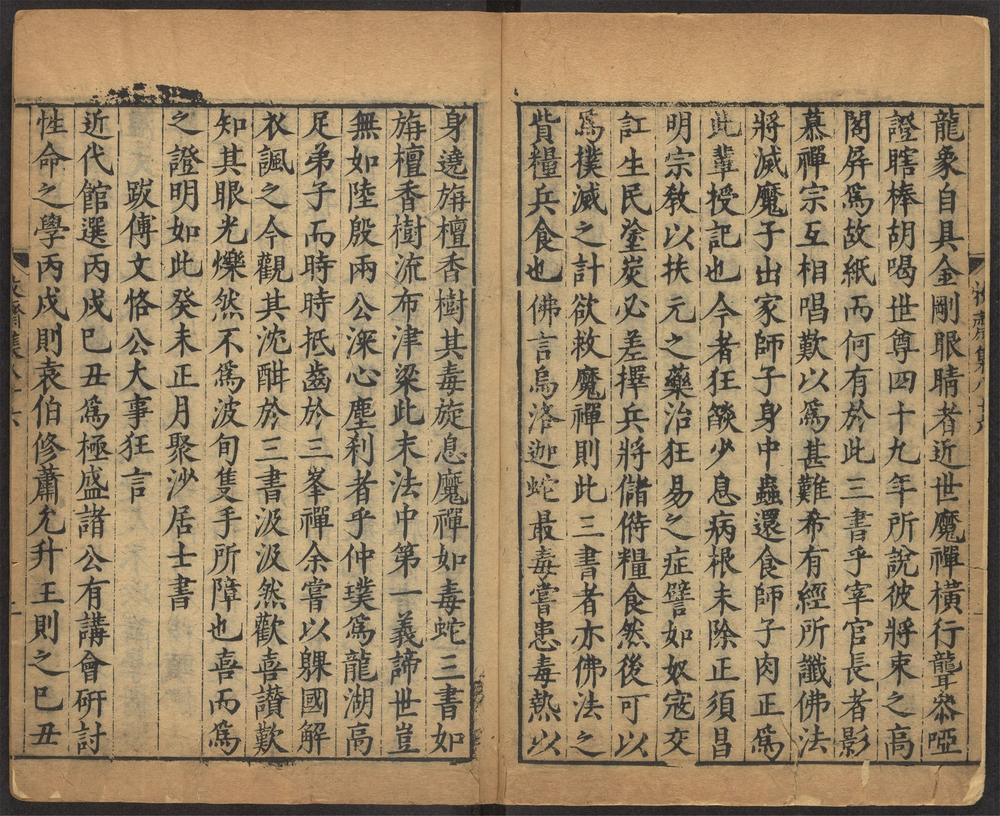 龍象自具金剛眼睛者近世魔禪橫行聾叅啞
證瞎棒胡喝世尊四十九年所說彼將束之高
閣屏爲故紙而何有於此三書乎宰官長者影
慕禪宗互相唱歎以爲甚難希有經所讖佛法
將滅魔子出家師子身中蟲還食師子肉正爲
此輩授記也今者狂燄少息病根未除正須昌
明宗教以扶元之藥治狂易之症譬如奴寇交
訌生民塗炭必差擇兵將儲偫糧食然後可以
爲撲滅之計欲救魔禪則此三書者亦佛法之
貲糧兵食也佛言烏洛迦蛇最毒嘗患毒熱以
身遶旃檀香樹其毒旋息魔禪如毒蛇三書如
旃檀香樹流布津梁此末法中第一義諦世豈
無如陸殷兩公深心塵刹者乎仲璞爲龍湖高
足弟子而時時抵齒於三峯禪余嘗以躶國解
衣諷之今觀其沈酣於三書汲汲然歡喜讚歎
知其眼光爍然不爲波旬隻手所障也喜而爲
之證明如此癸未正月聚沙居士書
跋傅文恪公大事狂言
近代館選丙戍巳丑爲極盛諸公有講會研討
性命之學丙戍則袁伯修蕭允升王則之巳丑